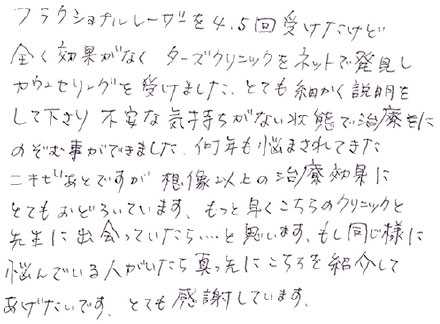 フラクショナルレーザーを4.5回受けたけど
全く効果がなく ターズクリニックをネットで発見し
カウンセリングを受けました。とても細かく説明を
して下さり 不安な気持ちがない状態で治療をに
のぞむ事ができました。何年も悩まされてきた
ニキビあとですが 想像以上の治療効果に
とてもおどろいています。もっと早くこちらのクリニックと
先生に出会っていたら‥‥と思います。もし同じ様に
悩んでいる人がいたら真っ先にこちらを紹介して
あげたいです。とても感謝しています。